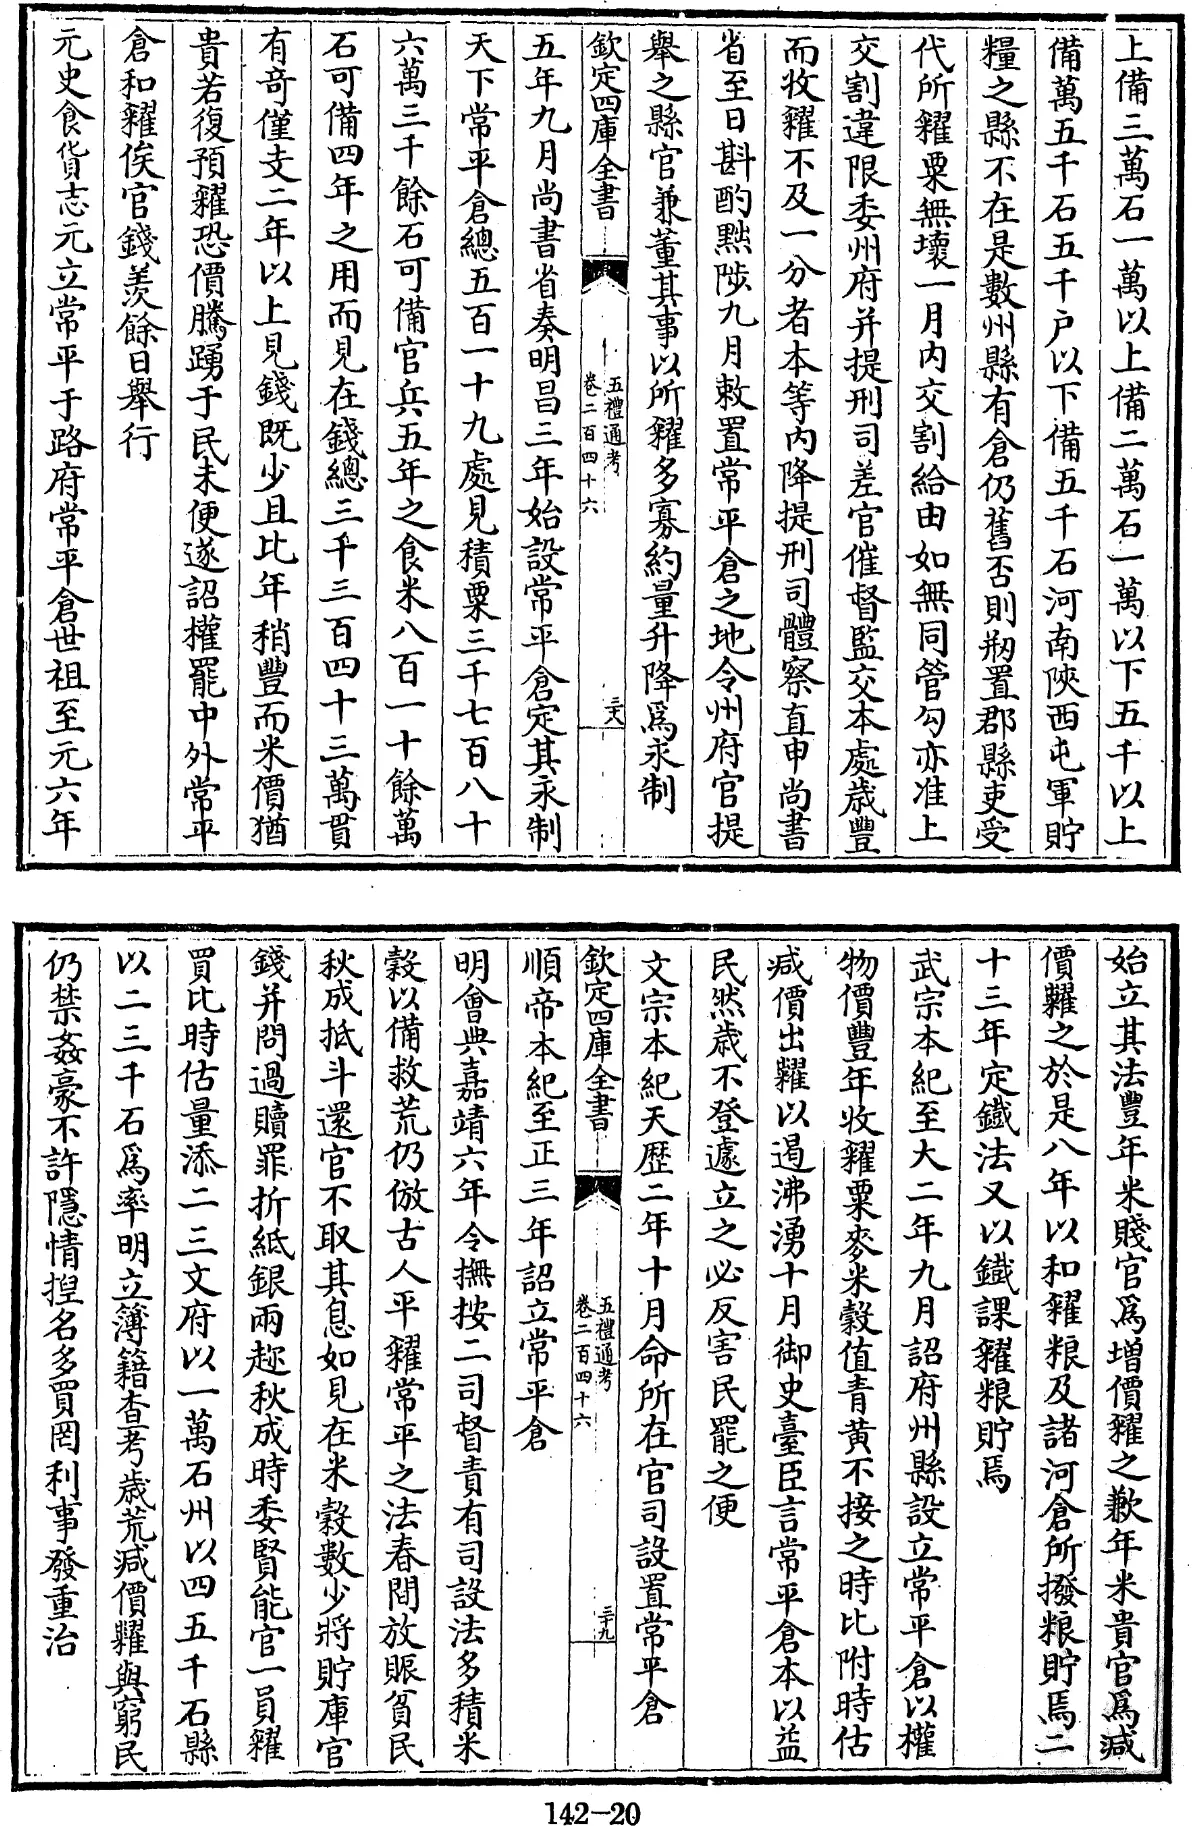 上備三萬石一萬以上備二萬石一萬以下五千以上
備萬五千石五千户以下備五千石河南陜西屯軍貯
糧之縣不在是數州縣有倉仍舊否則剏置郡縣吏受
代所糴粟無壞一月内交割給由如無同管勾亦准上
交割違限委州府并提刑司差官催督監交本處歳豐
而收糴不及一分者本等内降提刑司體察直申尚書
省至日斟酌黜陟九月敕置常平倉之地令州府官提
舉之縣官兼董其事以所糴多寡約量升降爲永制
欽定四庫全書
五禮通考
卷二百四十六
三十八
五年九月尚書省奏明昌三年始設常平倉定其永制
天下常平倉總五百一十九處見積粟三千七百八十
六萬三千餘石可備官兵五年之食米八百一十餘萬
石可備四年之用而見在錢總三千三百四十三萬貫
有奇僅支二年以上見錢既少且比年稍豐而米價猶
貴若復預糴恐價騰踴于民未便遂詔權罷中外常平
倉和糴俟官錢羨餘日舉行
元史食貨志元立常平于路府常平倉世祖至元六年
始立其法豐年米賤官爲增價糴之歉年米貴官爲減
價糶之於是八年以和糴粮及諸河倉所撥粮貯焉二
十三年定鐵法又以鐵課糴粮貯焉
武宗本紀至大二年九月詔府州縣設立常平倉以權
物價豐年收糴粟麥米穀值青黄不接之時比附時估
減價出糶以遏沸湧十月御史臺臣言常平倉本以益
民然歳不登遽立之必反害民罷之便
文宗本紀天歴二年十月命所在官司設置常平倉
欽定四庫全書
五禮通考
卷二百四十六
三十九
順帝本紀至正三年詔立常平倉
明會典嘉靖六年令撫按二司督責有司設法多積米
穀以備救荒仍倣古人平糴常平之法春間放賑貧民
秋成抵斗還官不取其息如見在米穀數少將貯庫官
錢并問過贖罪折紙銀兩趂秋成時委賢能官一員糴
買比時估量添二三文府以一萬石州以四五千石縣
以二三千石爲率明立簿籍查考歳荒減價糶與窮民
仍禁姦豪不許隱情揑名多買罔利事發重治
142-20